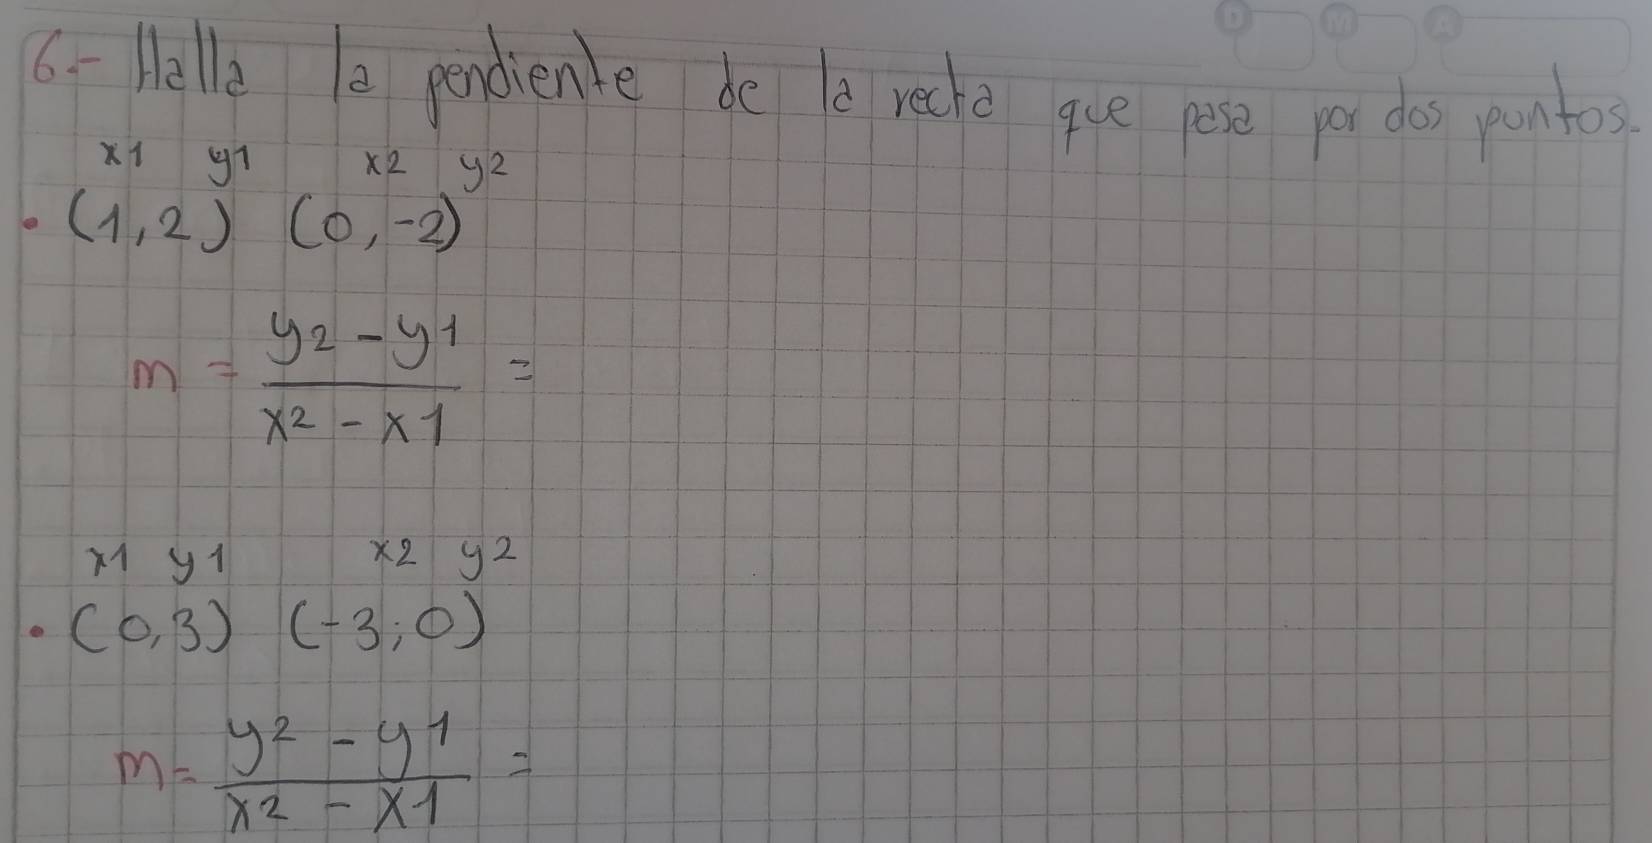 D M A
6.- Halla la pendiente de la recta que pasa por dos puntos.
x1 y1 x2 y2
• (1,2) (0,-2)
m = y2 - y1 / x2 - x1 =
x1 y1 x2 y2
• (0,3) (-3;0)
m = y2 - y1 / x2 - x1 =